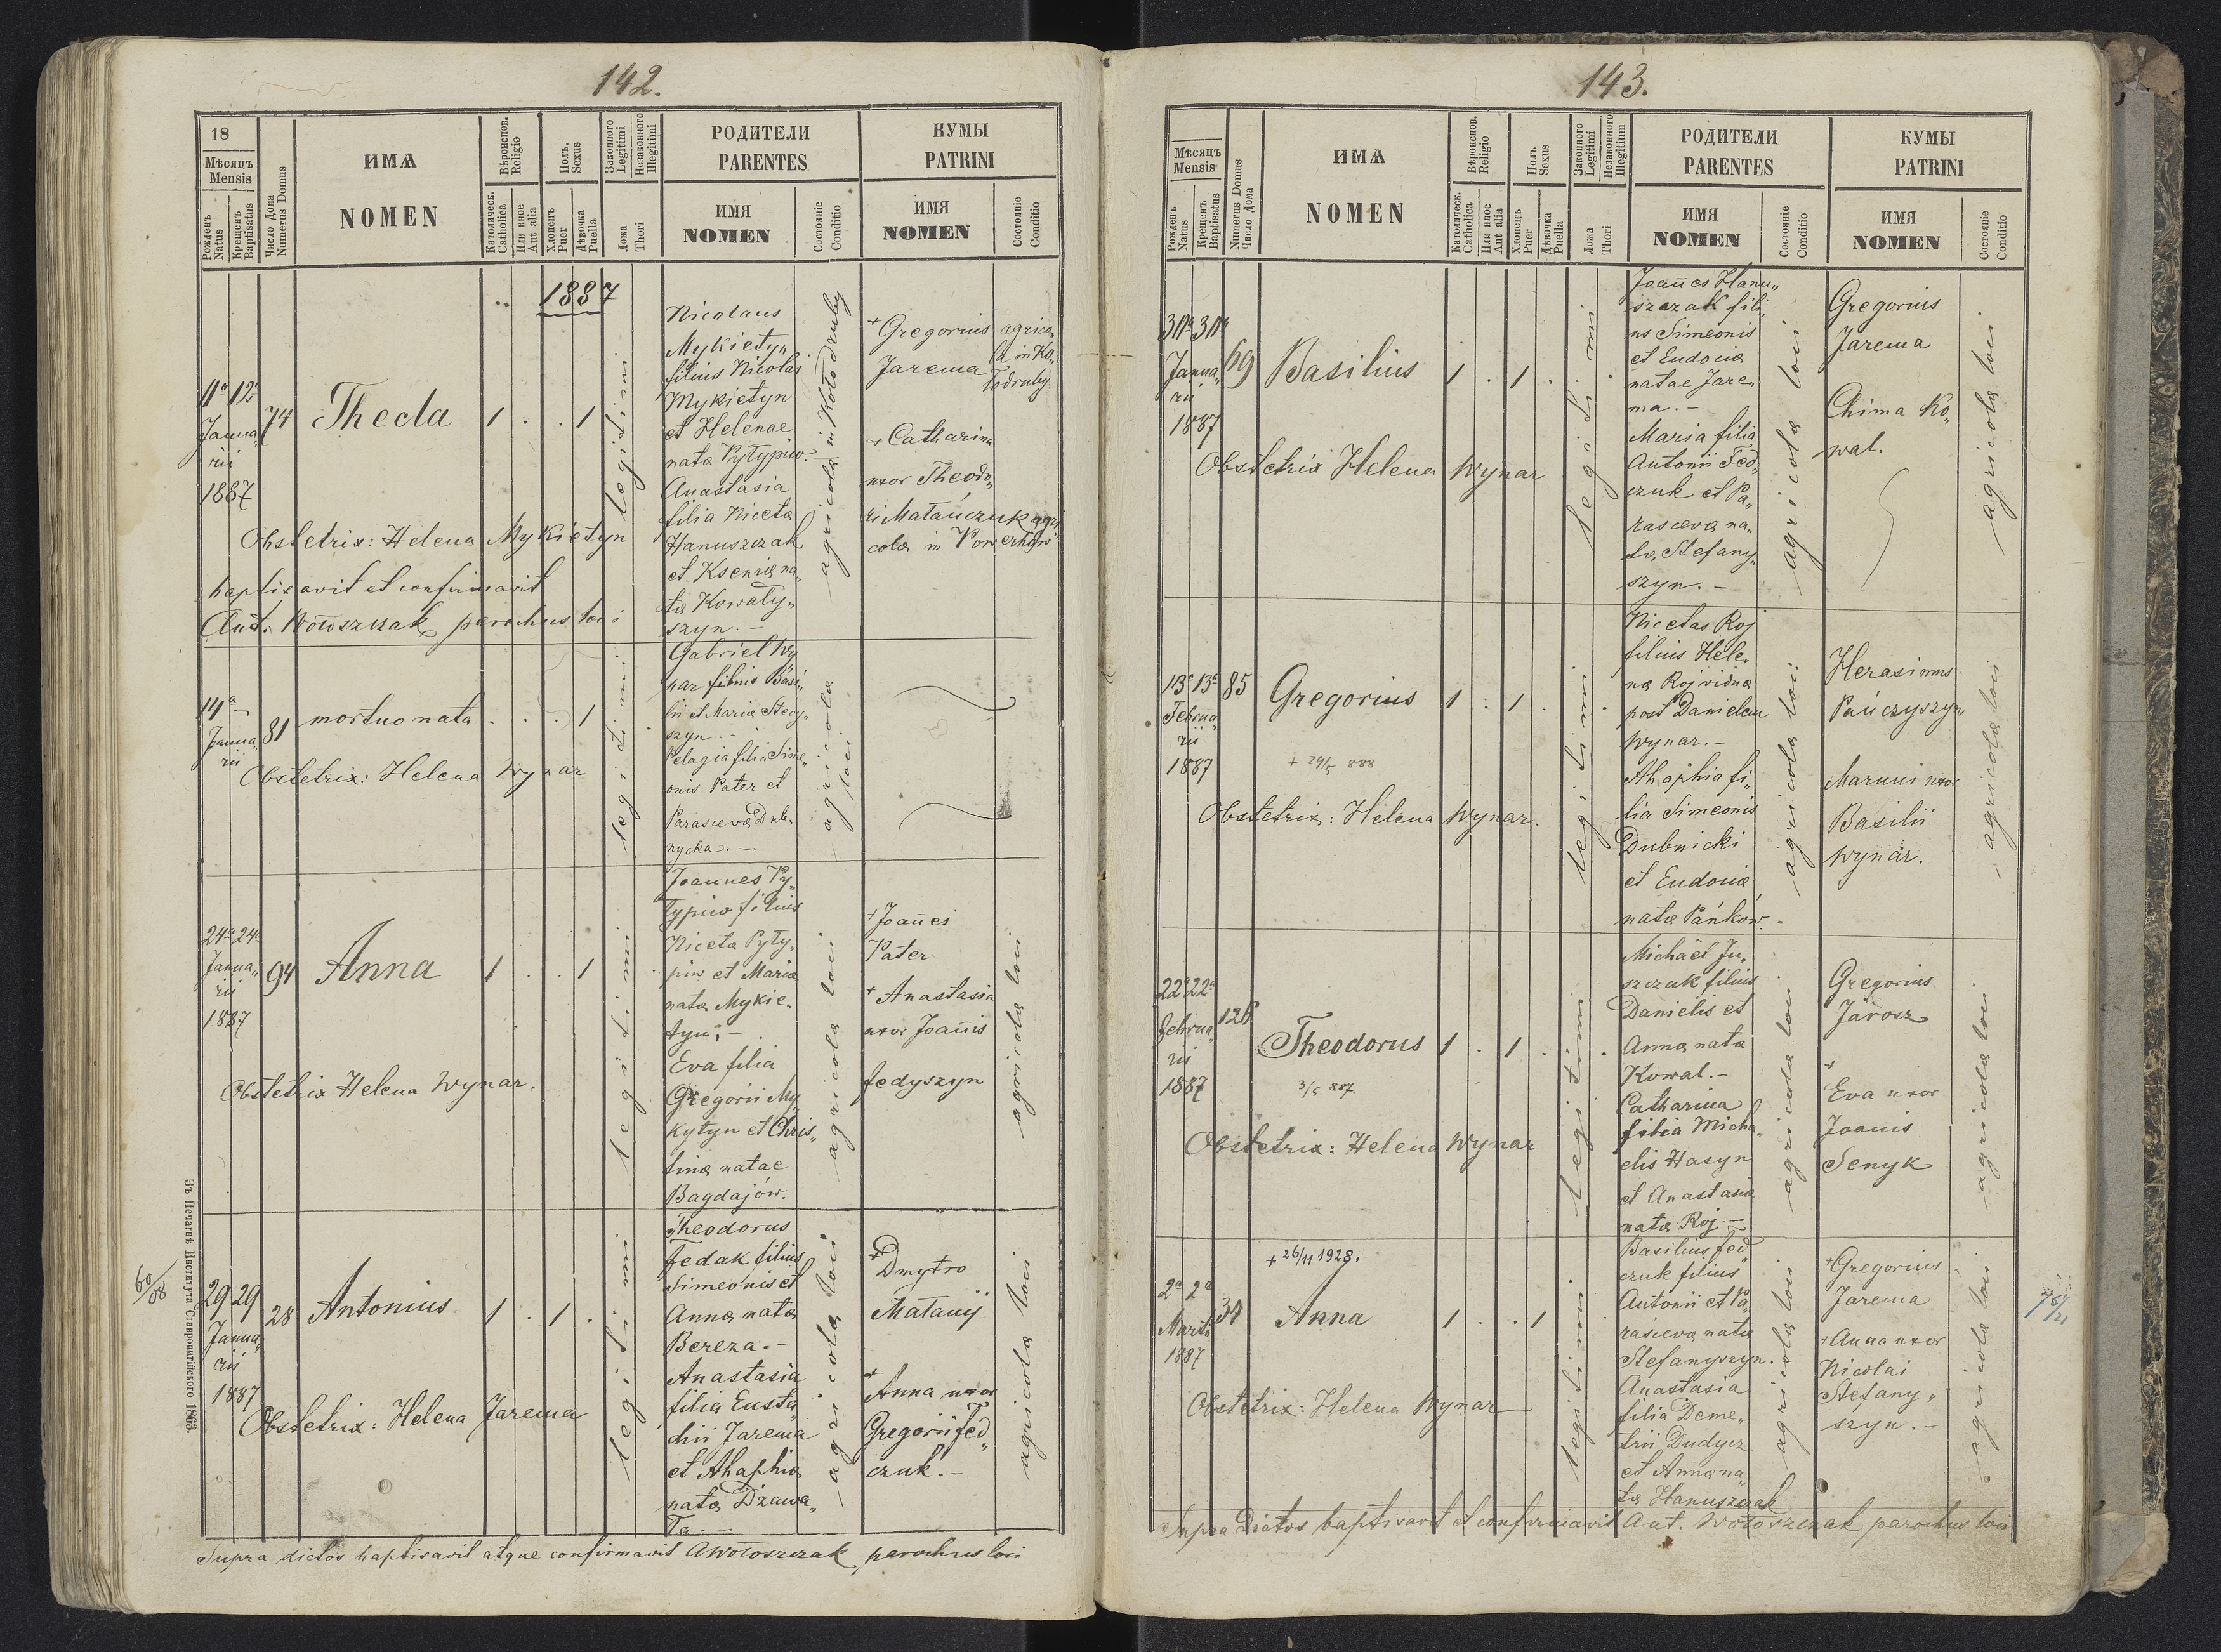 142.
18
Мѣсяцъ
Mensis
Рожденъ
Natus
Крещенъ
Baptisatus
Число Дома
Numerus Domus
ИМѦ
NOMEN
Вѣроисповѣд.
Religio
Католическ.
Catholica
Или иное
Aut alia
Полъ.
Sexus
Хлопецъ
Puer
Дѣвочка
Puella
Законного
Legitimi
Незаконного
Illegitimi
Ложа
Thori
РОДИТЕЛИ
PARENTES
ИМЯ
NOMEN
Состояніе
Conditio
КУМЫ
PATRINI
ИМЯ
NOMEN
Состояніе
Conditio
1887
11a 12a
Janua„
rii
1887
74
Thecla
1 . . 1
legitimi
Nicolaus
Mykietyn
filius Nicolai
Mykietyn
et Helenae
nata Pytypiw.
Anastasia
filia Niceta
Hanuszczak
et Kseniæ na„
ta Kowaty„
szyn. –
agricola in Kołodruby
+ Gregorius
Jarema
agrico„
la in Ko„
łodruby
Catharina
uxor Theodo„
ri Matańczuk agri
cola in Powerhów
Obstetrix: Helena Mykietyn
baptizavit et confirmavit
Ant. Wołoszczak parochus loci
14a –
Janua„
rii
81
mortuo nata
. . . 1
legitimi
Gabriel Wy
nar filius Basi„
lii et Maria Stecy„
szyn. –
Pelagia filia Sime„
onis Pater et
Parascevæ Dub„
nycka. –
agricola
loci
Obstetrix: Helena Wynar
24a 24a
Janua„
rii
1887
94
Anna
1 . . 1
legitimi
Joannes Py„
typiw filius
Niceta Pyty„
piw et Maria
nata Mykie„
tyn, –
Eva filia
Gregorii My
kytyn et Chris„
tina natae
Bagdajów.
agricola loci
+ Joańes
Pater
+ Anastasia
uxor Joańis
Fedyszyn
agricola loci
Obstetrix Helena Wynar.
60/08
29 29
Janua
rii
1887
28
Antonius
1 . 1 .
legitimi
Theodorus
Fedak filius
Simeonis et
Anna nata
Bereza. –
Anastasia
filia Eusta
chii Jarema
et Ahaphia
nata Dżawa„
ła. –
agricola loci
+ Dmytro
Matanij
+
Anna uxor
Gregorii Fed„
czuk. –
agricola loci
Obstetrix: Helena Jarema
Зъ Печатнѣ Института Ставропигійского 1863.
Supra dictos baptisavit atque confirmavit AWołoszczak parochus loci
143.
Мѣсяцъ
Mensis
Рожденъ
Natus
Крещенъ
Baptisatus
Numerus Domus
Число Дома
ИМѦ
NOMEN
Вѣроисповѣд.
Religio
Католическ.
Catholica
Или иное
Aut alia
Полъ
Sexus
Хлопецъ
Puer
Дѣвочка
Puella
Законного
Legitimi
Незаконного
Illegitimum
Ложа
Thori
РОДИТЕЛИ
PARENTES
ИМЯ
NOMEN
Состояніе
Conditio
КУМЫ
PATRINI
ИМЯ
NOMEN
Состояніе
Conditio
Janua„
rii
1887
69
Basilius
1 . 1 .
legitimi
Joańes Hanu„
szczak fili„
us Simeonis
et Eudocia
natae Jare„
ma. –
Maria filia
Antonii Fed„
czuk et Pa„
rasceva na„
ta Stefany„
szyn. –
agricola loci
Gregorius
Jarema
Chima Ko„
wal.
agricola loci
Obstetrix Helena Wynar
13a 13a
Februa
rii
1887
85
Gregorius
1 . 1 .
+ 29/5 888
legitimi
Nicetas Roj
filius Hele„
na Roj vidua
post Danielem
Wynar. –
Ahaphia fi„
lia Simeonis
Dubnicki
et Eudocia
nata Pańków. –
agricola loci
Herasimus
Pańczyszyn
Maruni uxor
Basilii
Wynar.
agricola loci
Obstetrix: Helena Wynar.
22a 22a
Februa
rii
1887
126
Theodorus
1 . 1 .
3/5 887
legitimi
Michaël Ju„
szczak filius
Danielis et
Anna nata
Kowal. –
Catharina
filia Micha„
elis Hasyn
et Anastasia
nata Roj. –
agricola loci
Gregorius
Jarosz
+
Eva uxor
Joanis
Senyk
agricola loci
Obstetrix: Helena Wynar
+ 26/11 1928.
2a 2a
Marti
1887
34
Anna
1 . . 1
legitimi
Basilius Fed„
czuk filius
Antonii et Pa„
rasceva nata
Stefanyszyn.
Anastasia
filia Deme„
trii Dudycz
et Anna na„
ta Hanuszczak
agricola loci
+ Gregorius
Jarema
+ Anna uxor
Nicolai
Stefany„
szyn. –
agricola loci
Obstetrix: Helena Wynar
Supra Dictos baptisavit et confirmavit Ant. Wołoszczak parochus loci